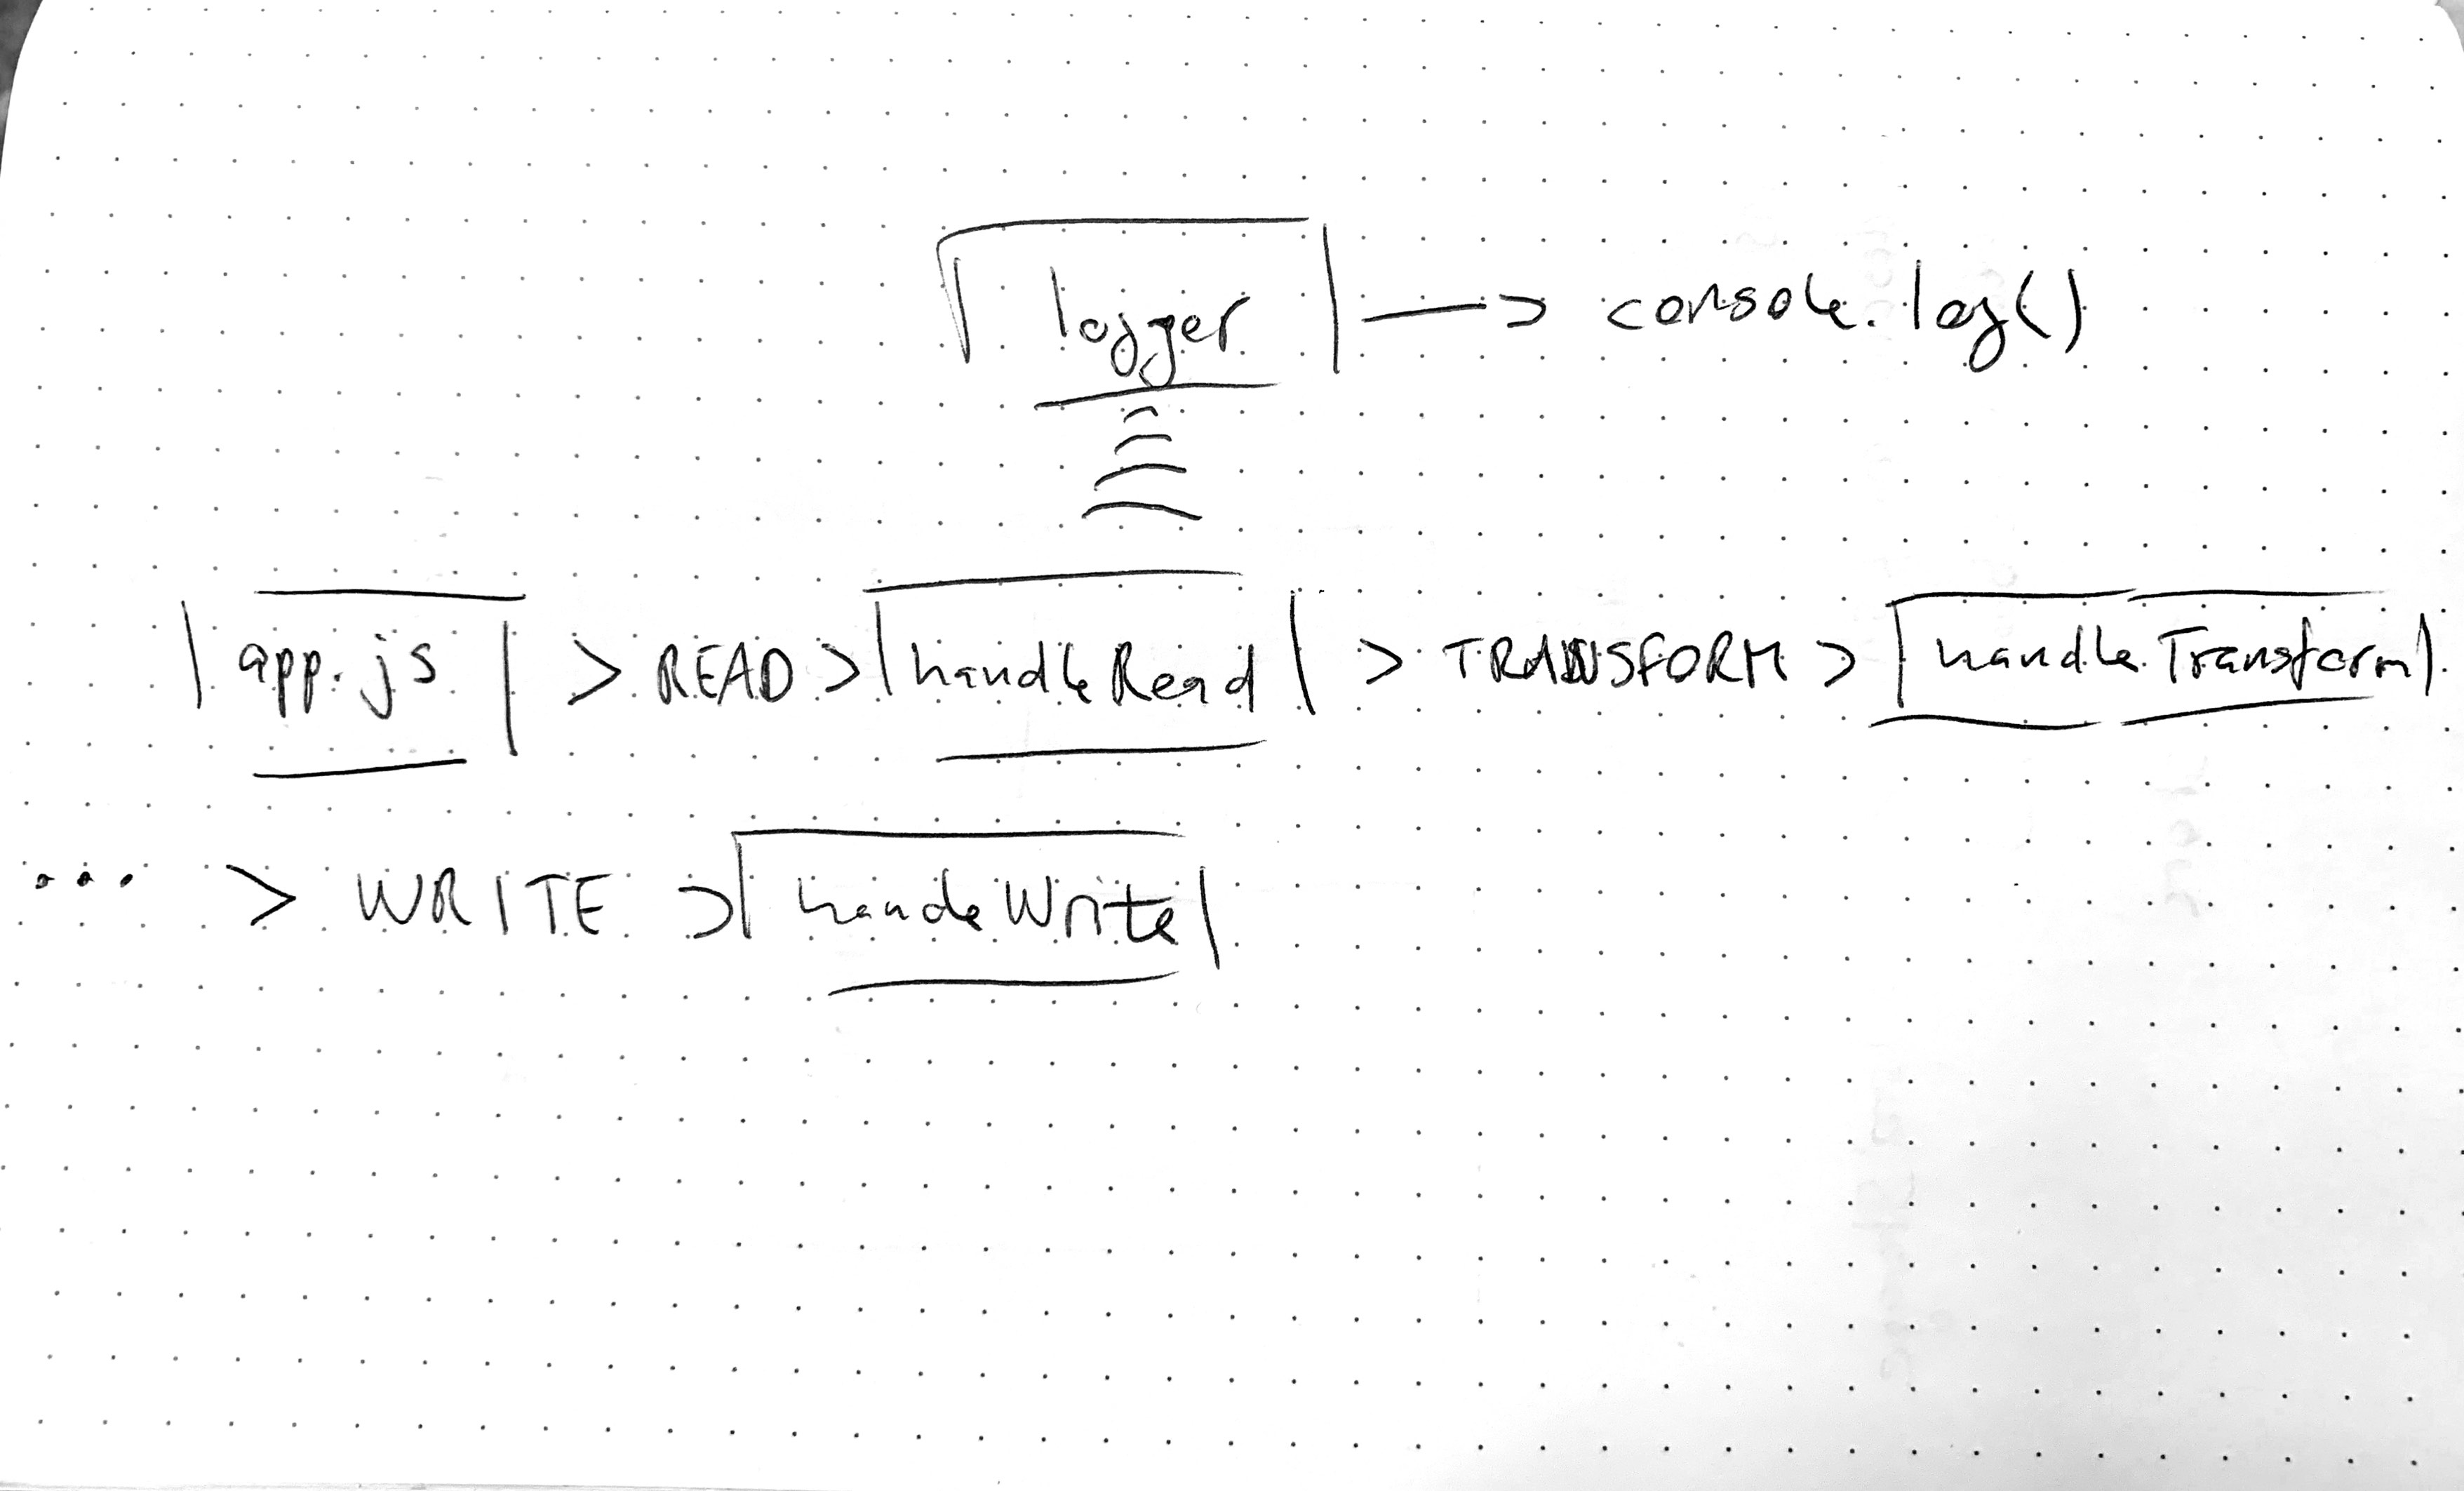 logger —> console.log()
app.js > READ > handleRead > TRANSFORM > handleTransform
... > WRITE > handleWrite